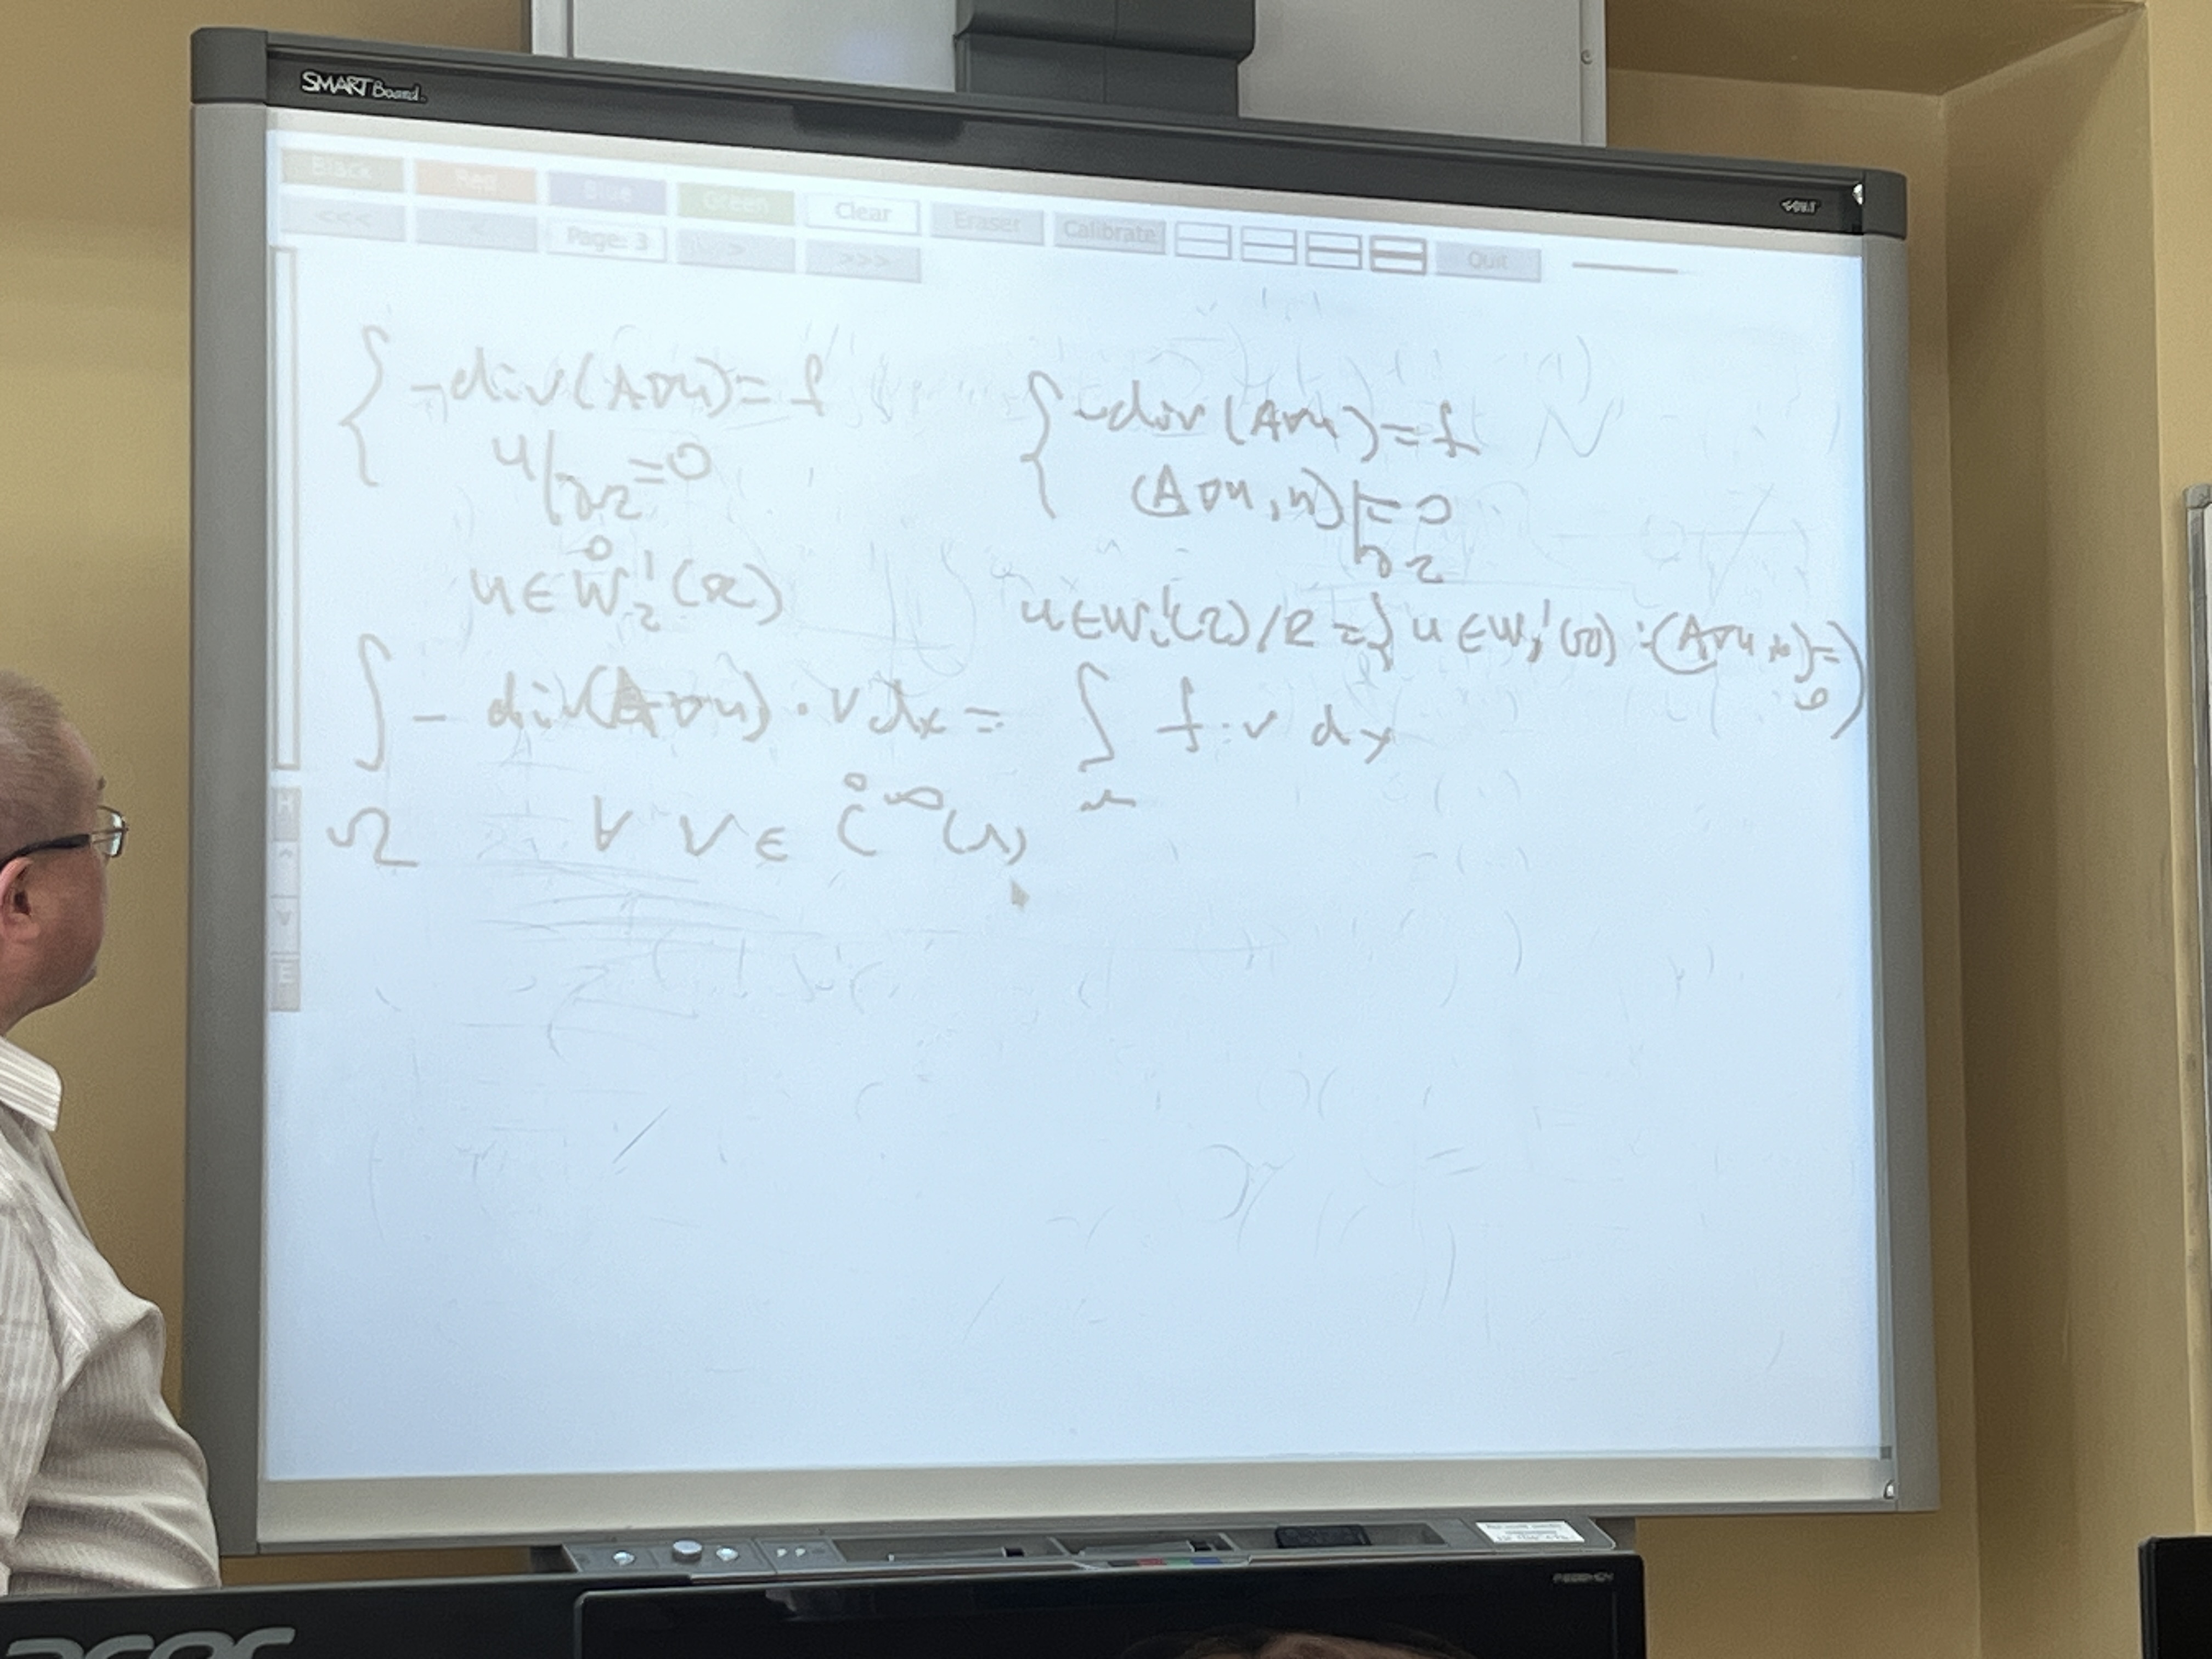 SMART Board
Black Red Blue Green Clear Eraser Calibrate Quit
<<< < Page: 3 > >>>
-div(A∇u) = f
u|∂Ω = 0
u ∈ W̊₂¹(Ω)
-div(A∇u) = f
(A∇u, n)|∂Ω = 0
u ∈ W₂¹(Ω)/R = { u ∈ W₂¹(Ω) : (A∇u, n) = 0 }
∫Ω - div(A∇u) · v dx = ∫Ω f · v dx
∀ v ∈ C̊^∞(Ω)
H
E
acer